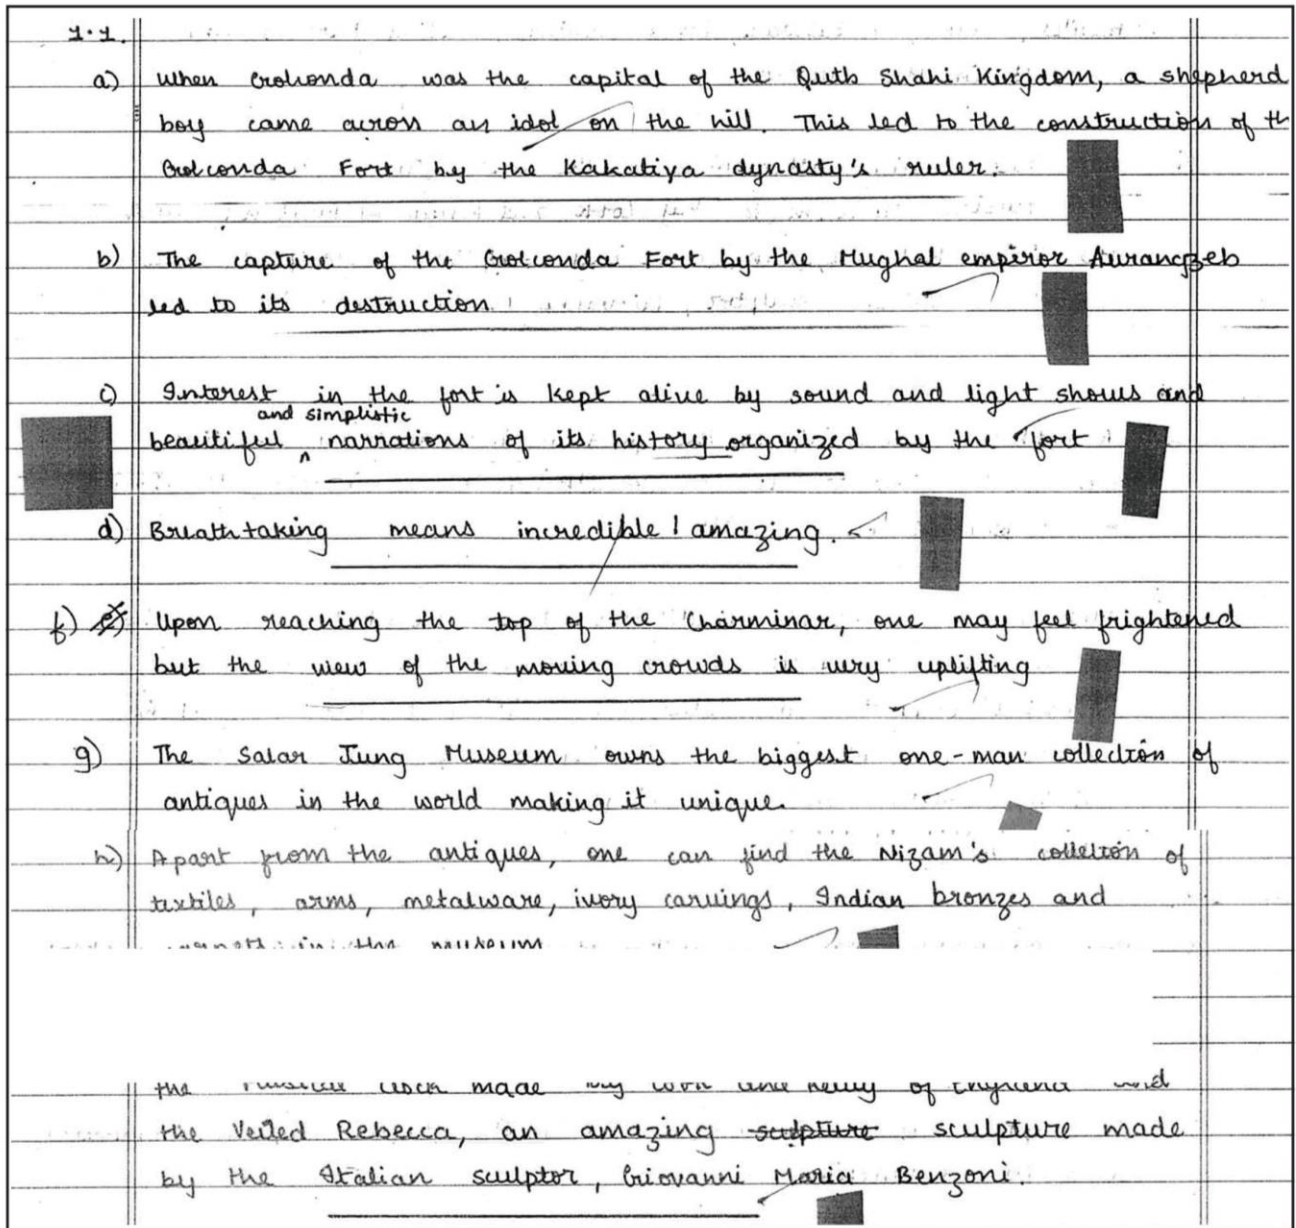 1.1.
a) When Golconda was the capital of the Qutb Shahi Kingdom, a shepherd
boy came across an idol on the hill. This led to the construction of th
Golconda Fort by the Kakatiya dynasty's ruler.
b) The capture of the Golconda Fort by the Mughal emperor Aurangzeb
led to its destruction.
c) Interest in the fort is kept alive by sound and light shows and
and simplistic
beautiful ^ narrations of its history organized by the fort
d) Breathtaking means incredible / amazing.
f) e) Upon reaching the top of the Charminar, one may feel frightened
but the view of the moving crowds is very uplifting
g) The Salar Jung Museum owns the biggest one-man collection of
antiques in the world making it unique.
h) Apart from the antiques, one can find the Nizam's collection of
textiles, arms, metalware, ivory carvings, Indian bronzes and
in the museum
the made of
the Veiled Rebecca, an amazing sculpture sculpture made
by the Italian sculptor, Giovanni Maria Benzoni.